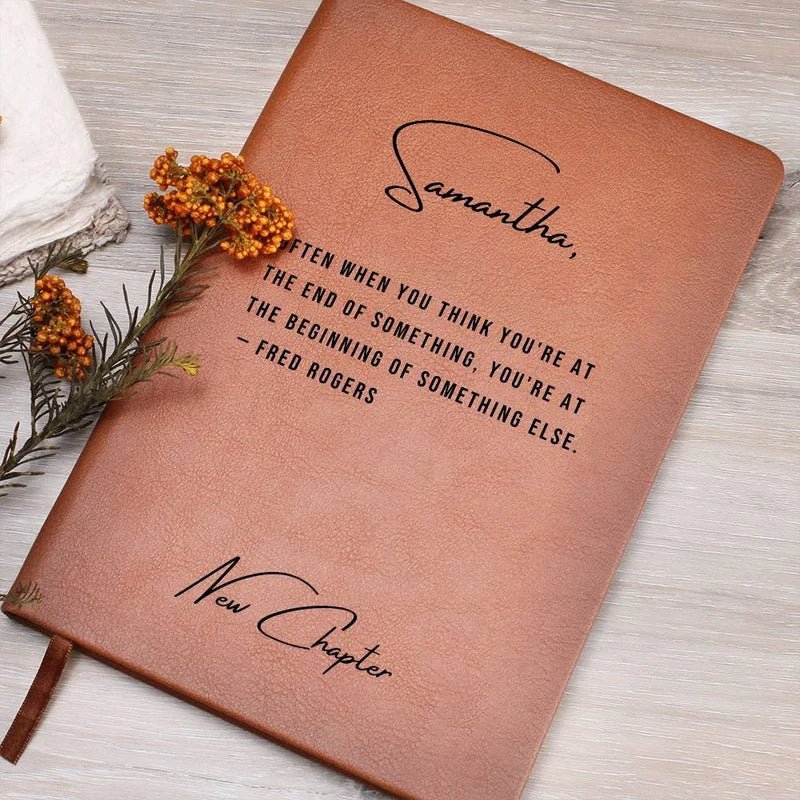 Samantha,
OFTEN WHEN YOU THINK YOU'RE AT
THE END OF SOMETHING, YOU'RE AT
THE BEGINNING OF SOMETHING ELSE.
– FRED ROGERS
New Chapter